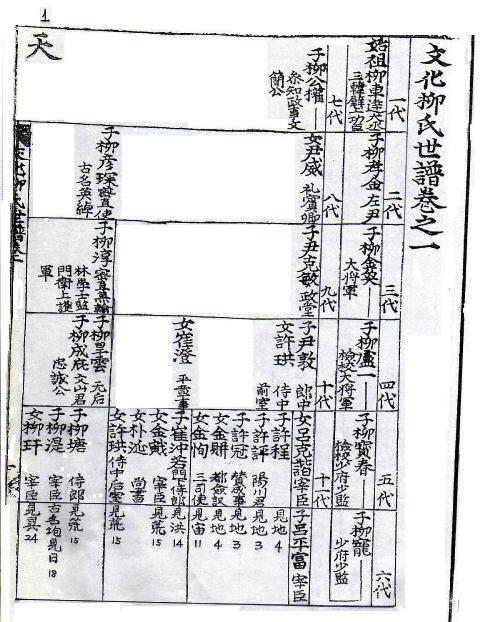 1
文化柳氏世譜卷之一
一代
始祖柳車達大丞
三韓壁上功臣
二代
子柳孝金 左尹
三代
子柳金奐
大將軍
四代
子柳盧一
檢校大將軍
五代
子柳寶春
檢校少府少監
六代
子柳寵
少府少監
七代
子柳公權
參知政事文
簡公
八代
女尹威 礼賓卿
九代
子尹克敏 政堂
十代
子尹敦 郎中
女許珙 侍中
前室
女崔澄 平章事
十一代
女呂克諧 宰臣
子呂平富 宰臣
子許程 見地 4
子許評 陽川君 見地 3
子許冠 贊成事 見地 3
女金賆 都僉議 見地 4
女金恂 三司使 見宙 11
子崔冲若 門下侍郎 見洪 14
女金戴 宰臣 見荒 15
女朴 尚書
女許珙 侍中后室 見荒 15
天
子柳彦琛
古名英
子柳淳
林學士監
門衛上護
軍
子柳
子柳成庇 文君
忠誠公
子柳塘 侍郎 見荒 15
子柳湜 宰臣 見日 18
女柳玕 宰臣 見 24